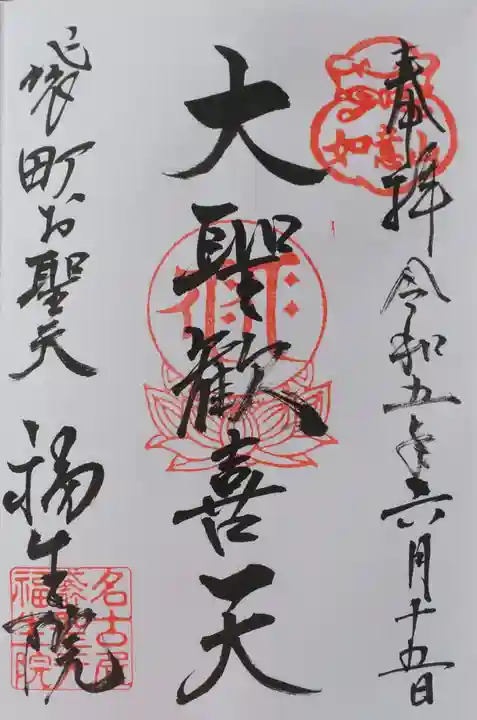 奉拝 令和五年六月十五日
如意山
大聖歓喜天
袋町お聖天
福生院
名古屋
福生院